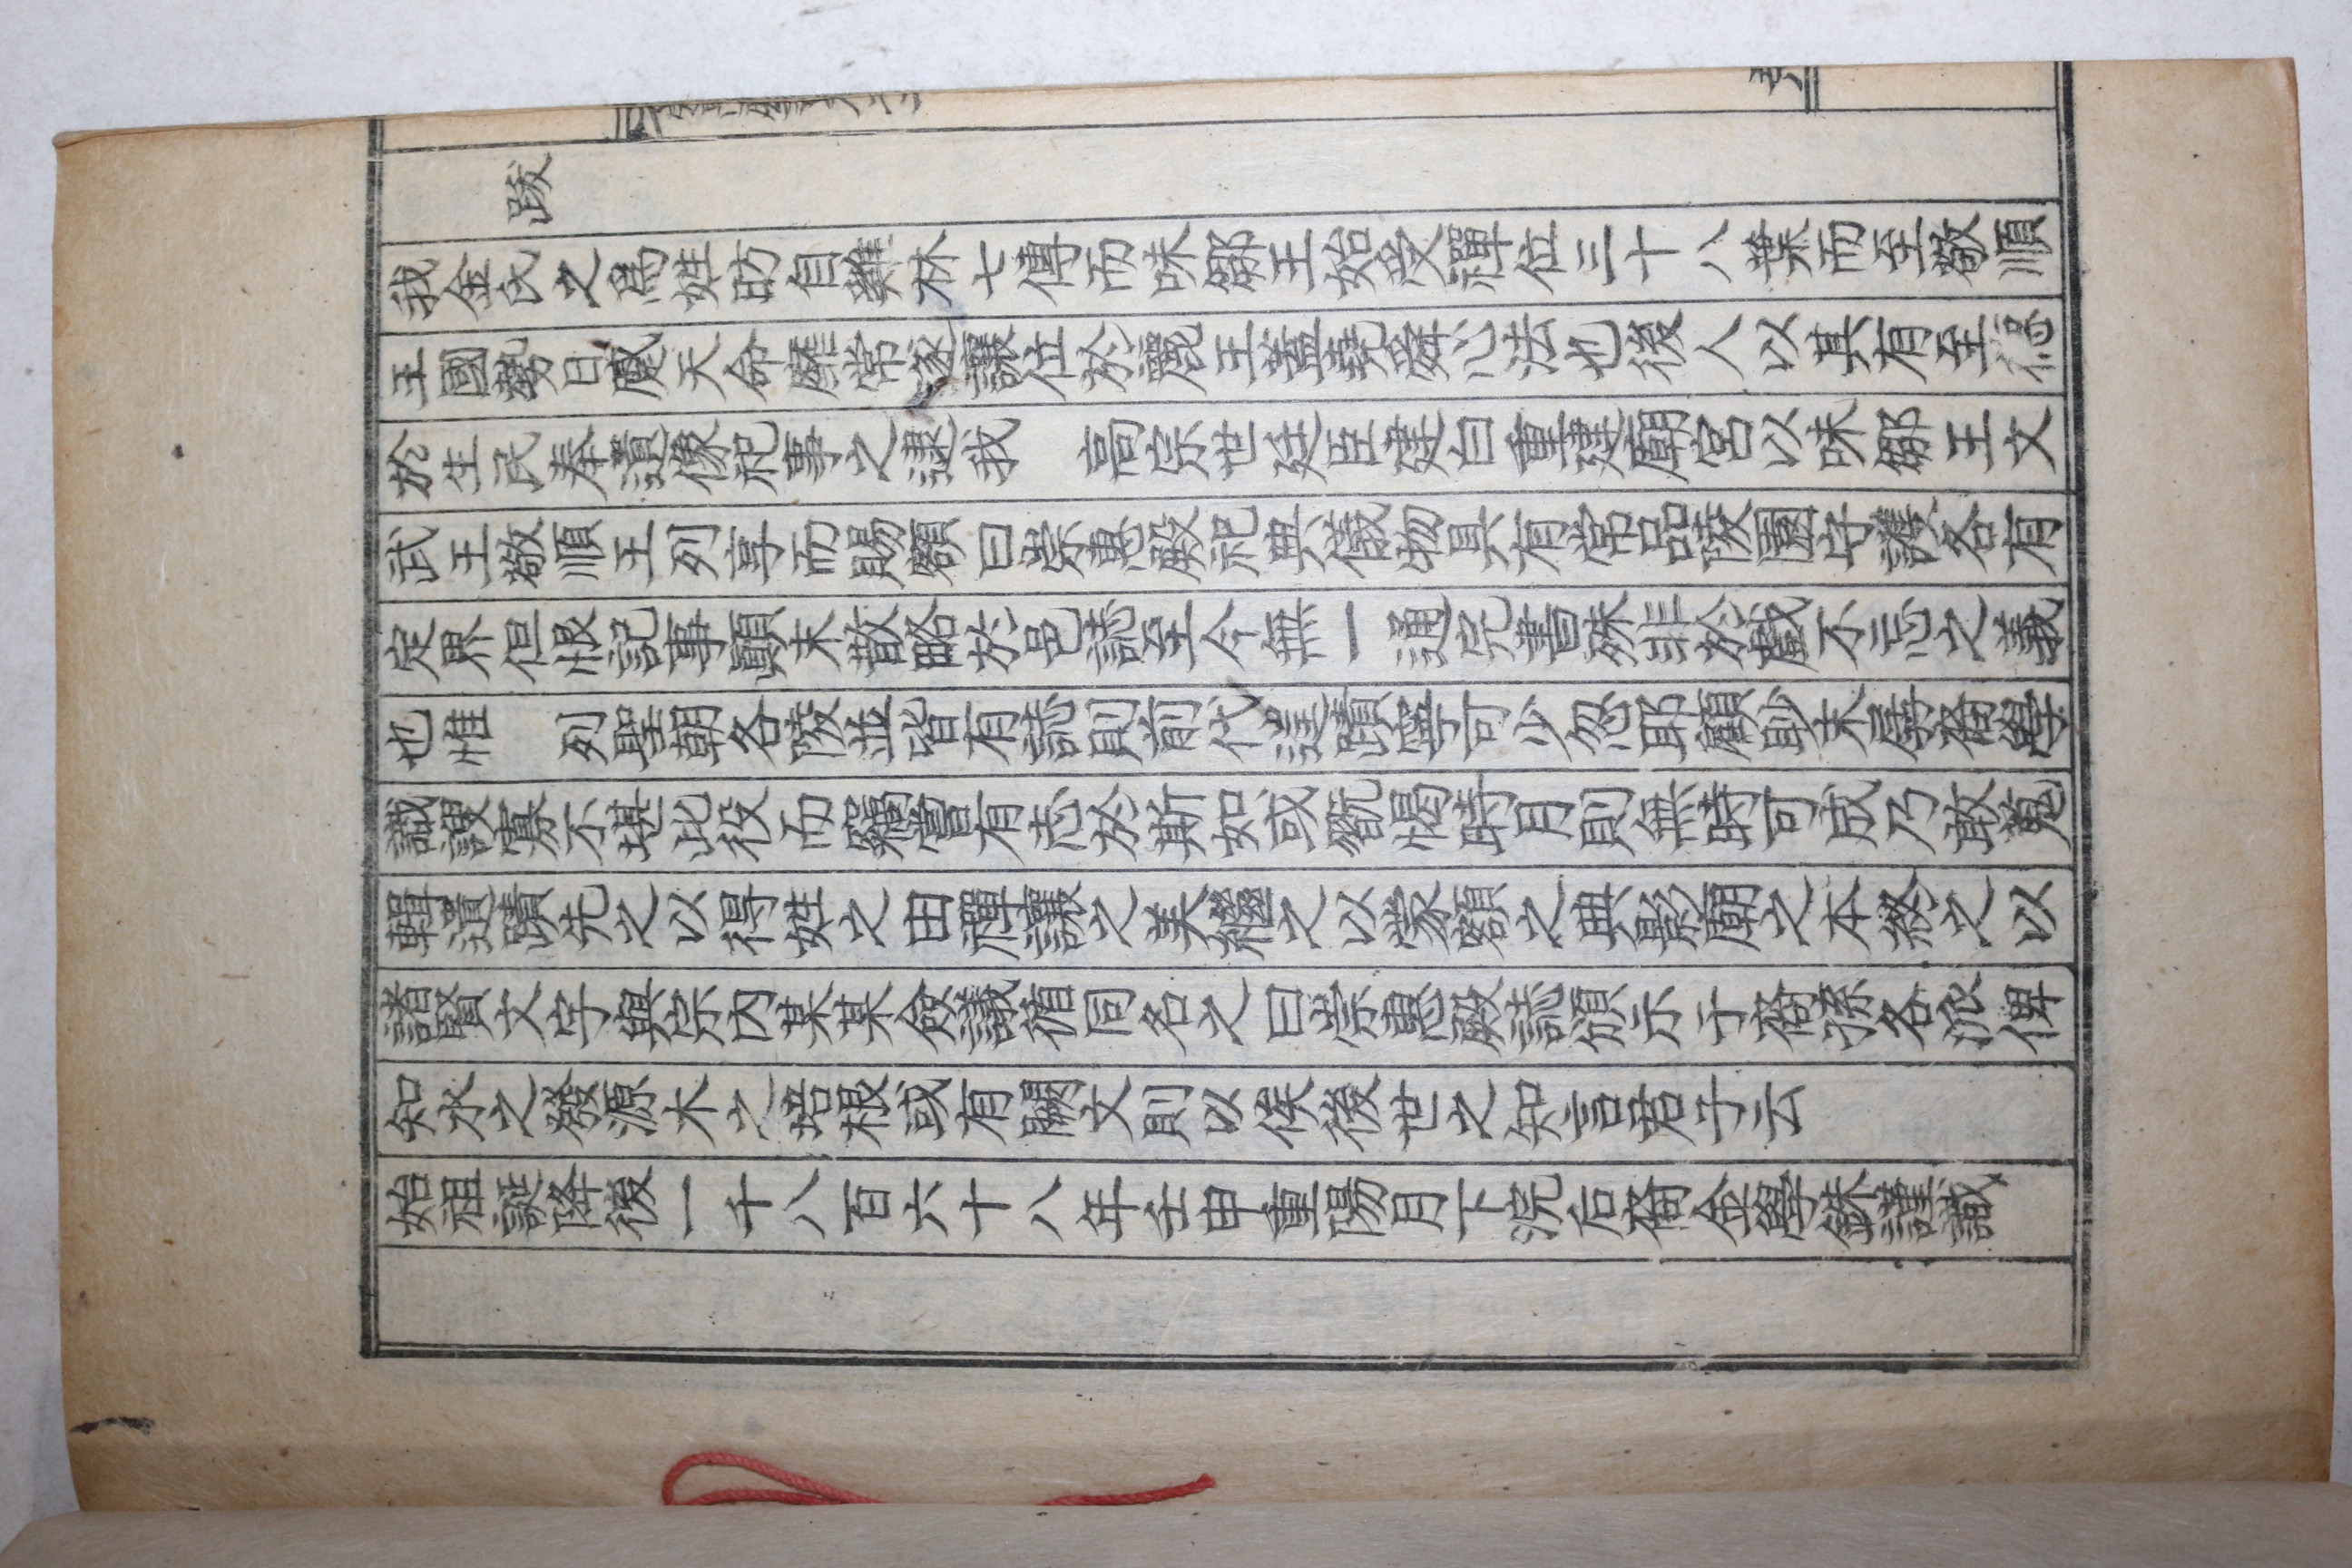 跋
我金氏之爲姓昉自雞林七傳而味鄒王始受禪位三十八葉而至敬順
王國勢日蹙天命靡常遂讓位於麗王盖堯舜心法也後人以其有至德
於生民奉遺像祀事之逮我 高宗世廷臣建白重建廟宮以味鄒王文
武王敬順王列享而賜額曰崇惠殿祀典儀物具有常品陵園守護各有
定界但恨記事顚末昔略於邑誌至今無一通完書殊非於戱不忘之義
也惟 列聖朝各陵並皆有誌則前代遺蹟寧可少忽耶顧眇末孱裔學
識謏寡不堪此役而竊嘗有志於斯如或翫愒時月則無時可成乃敢蒐
輯遺蹟先之以得姓之由禪讓之美繼之以蒙額之典影廟之本終之以
諸賢文字與宗內某某僉議詢同名之曰崇惠殿誌頒示子裔孫各派俾
知水之發源木之培根或有闕文則以俟後世之知言君子云
始祖誕降後一千八百六十八年壬申重陽月下浣后裔金學銖謹識